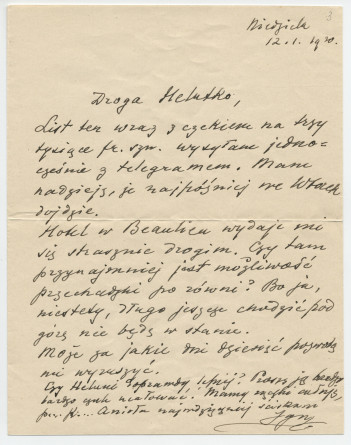 3
Niedziela
12.1.1930.
Droga Helutko,
List ten wraz z czekiem na trzy
tysiące fr. szw. wysyłam jedno-
cześnie z telegramem. Mam
nadzieję, że najpóźniej we Wtorek
dojdzie.
Hotel w Beaulieu wydaje mi
się strasznie drogim. Czy tam
przynajmniej jest możliwość
przechadzki po równi? Bo ja,
niestety, długo jeszcze chodzić pod
górę nie będę w stanie.
Może za jakie dni dziesięć pozwolą
mi wyruszyć.
Czy Heluni naprawdę lepiej? Proszę ją bardzo
bardzo ode mnie ucałować. Mamy
Anioła najmocniej ściskam